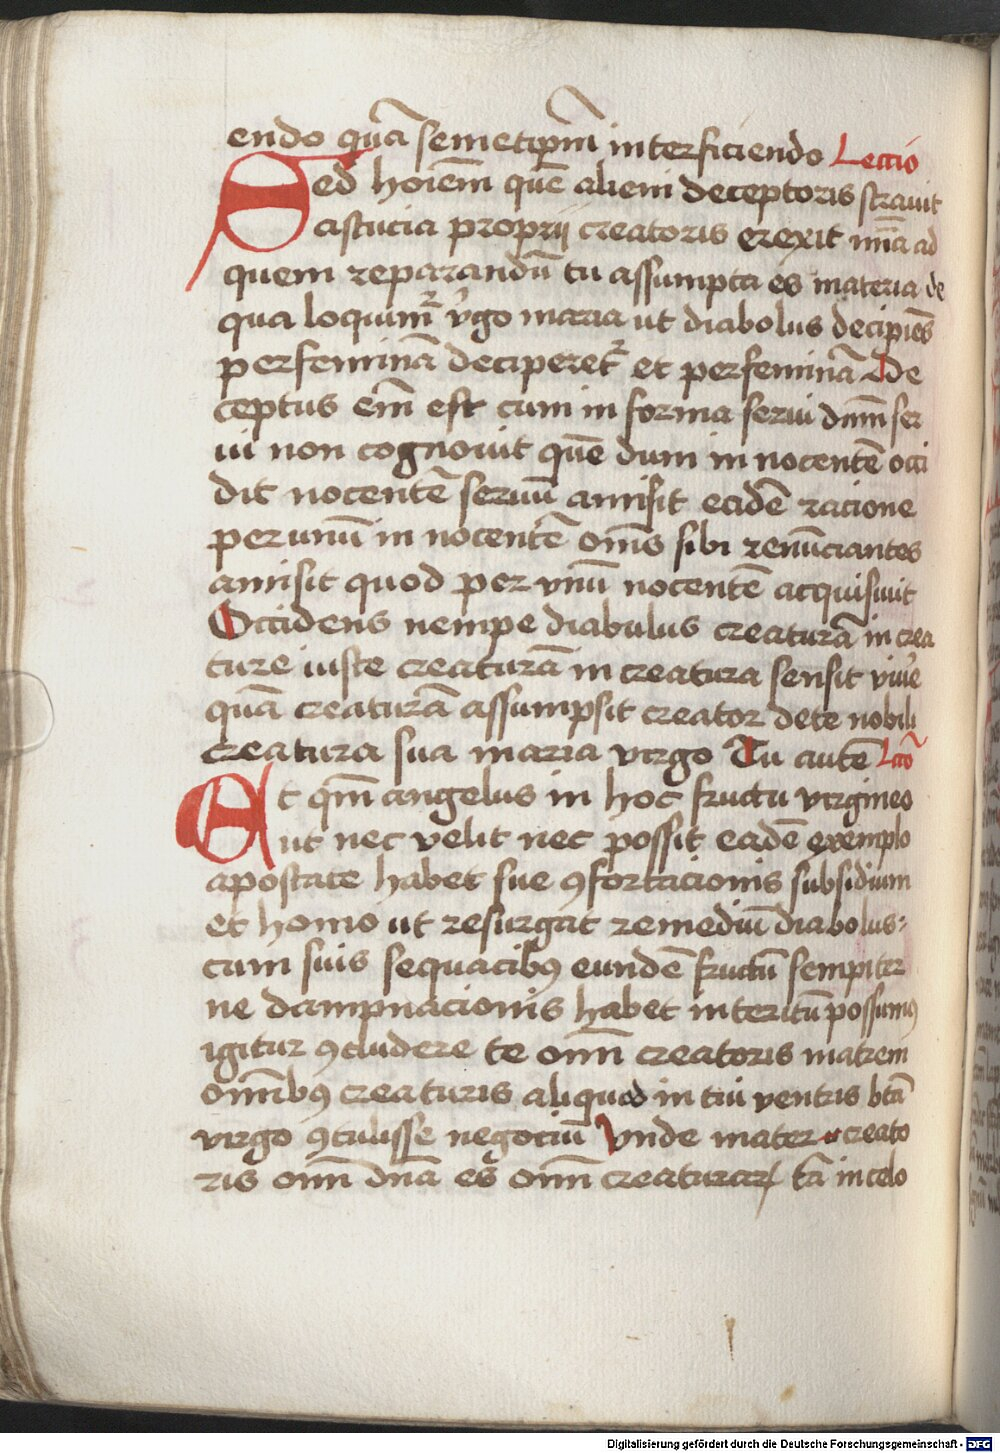 endo quā semetip̄m interficiendo Lectio
Sed hoīem quē alieni deceptoris strauit
astucia proprij creatoris erexit mīa ad
quem reparandū tu assumpta es materia de
qua loquimur v̓go maria ut diabolus decipiēs
per feminā deciperet᷑ et per feminā De
ceptus em̄ est cum in forma serui dn̄m ser
ui non cognouit quē dum in nocentē occi
dit nocentē seruū amisit eadē racione
per unū in nocentē om̄s sibi renūciantes
amisit quod per vnū nocentē acquisiuit
Occidens nempe diabulus creaturā in crea
ture iuste creaturā in creatura sensit viu̓e
quā creaturā assumpsit creator de te nobili
creatura sua maria virgo Tu autē Lc̄o
Et qm̄ angelus in hoc fructu virgineo
ut nec velit nec possit eadē exemplo
apostate habet sue ꝯfortacionis subsidium
et homo ut resurgat remediū diabolus
cum suis sequacibꝯ eundē fructū sempiter
ne dampnacionis habet interitū possumꝯ
igitur ꝯcludere te om̄ creatoris matrem
om̄ibꝯ creaturis aliquod in tui ventris btā
virgo ꝯtulisse negotiū Vnde mater creato
ris om̄ dn̄a es om̄ creaturaꝝ tā in celo
Digitalisierung gefördert durch die Deutsche Forschungsgemeinschaft - DFG